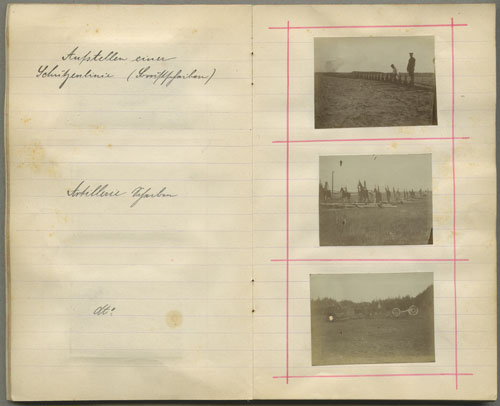 Aufstellen einer
Schützenlinie (Rumpfscheiben)
Artillerie Scheiben
dto